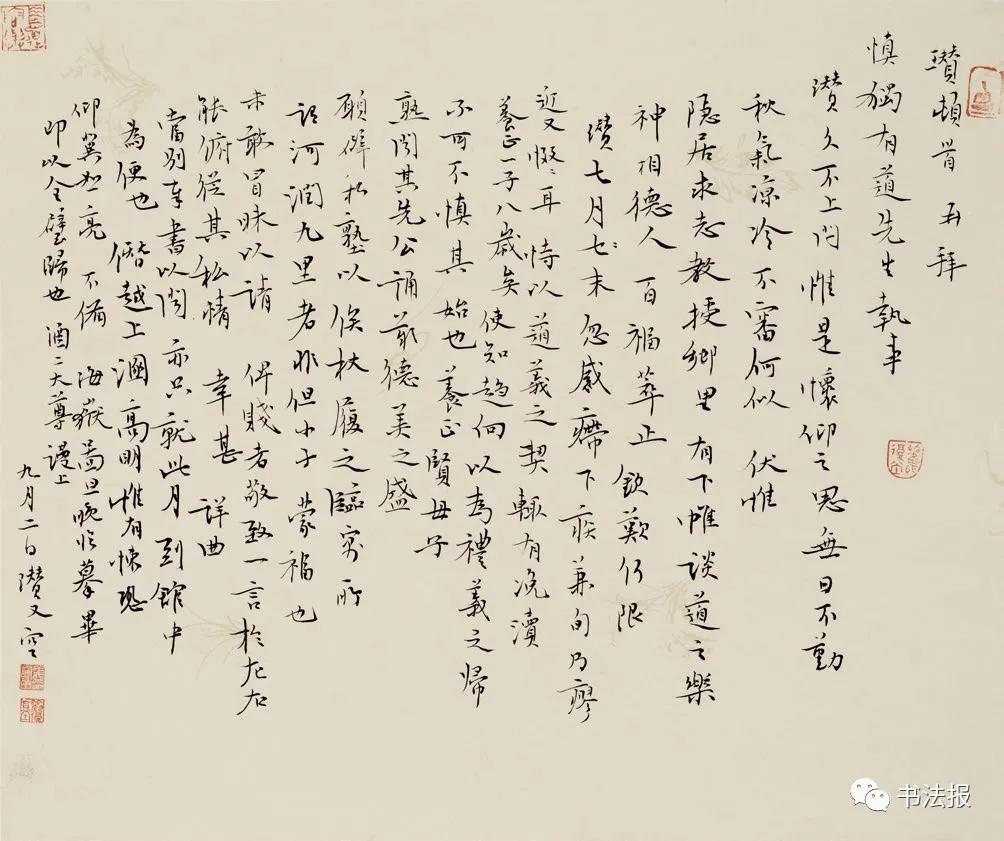 瓚頓首 再拜
慎獨有道先生執事
瓚久不上問惟是懷仰之思無日不勤
秋氣涼冷不審何似 伏惟
隱居求志教授鄉里 有下帷談道之樂
神相德人 百福萃止 欽歎何限
瓚七月七ミ末忽感滯下疾兼旬乃瘳
近又惙ミ耳恃以道義之契輒有浼瀆
養正一子八歲矣使知趨向以為禮義之歸
不可不慎其始也養正賢母子
熟聞其先公誦前德美之盛
願辟私塾以俟杖履之臨寔所
謂河潤九里者非但小子蒙福也
未敢冒昧以請 俾賤者敬致一言於左右
能俯從其私情 幸甚 詳曲
當別奉書以聞 亦只就此月到館中
為便也 僭越上溷高明惟有悚恐
仰冀如亮 不備 海嶽菴圖旦晚臨摹畢
即以全璧歸也酒二大尊謹上
九月二日瓚又空
书法报